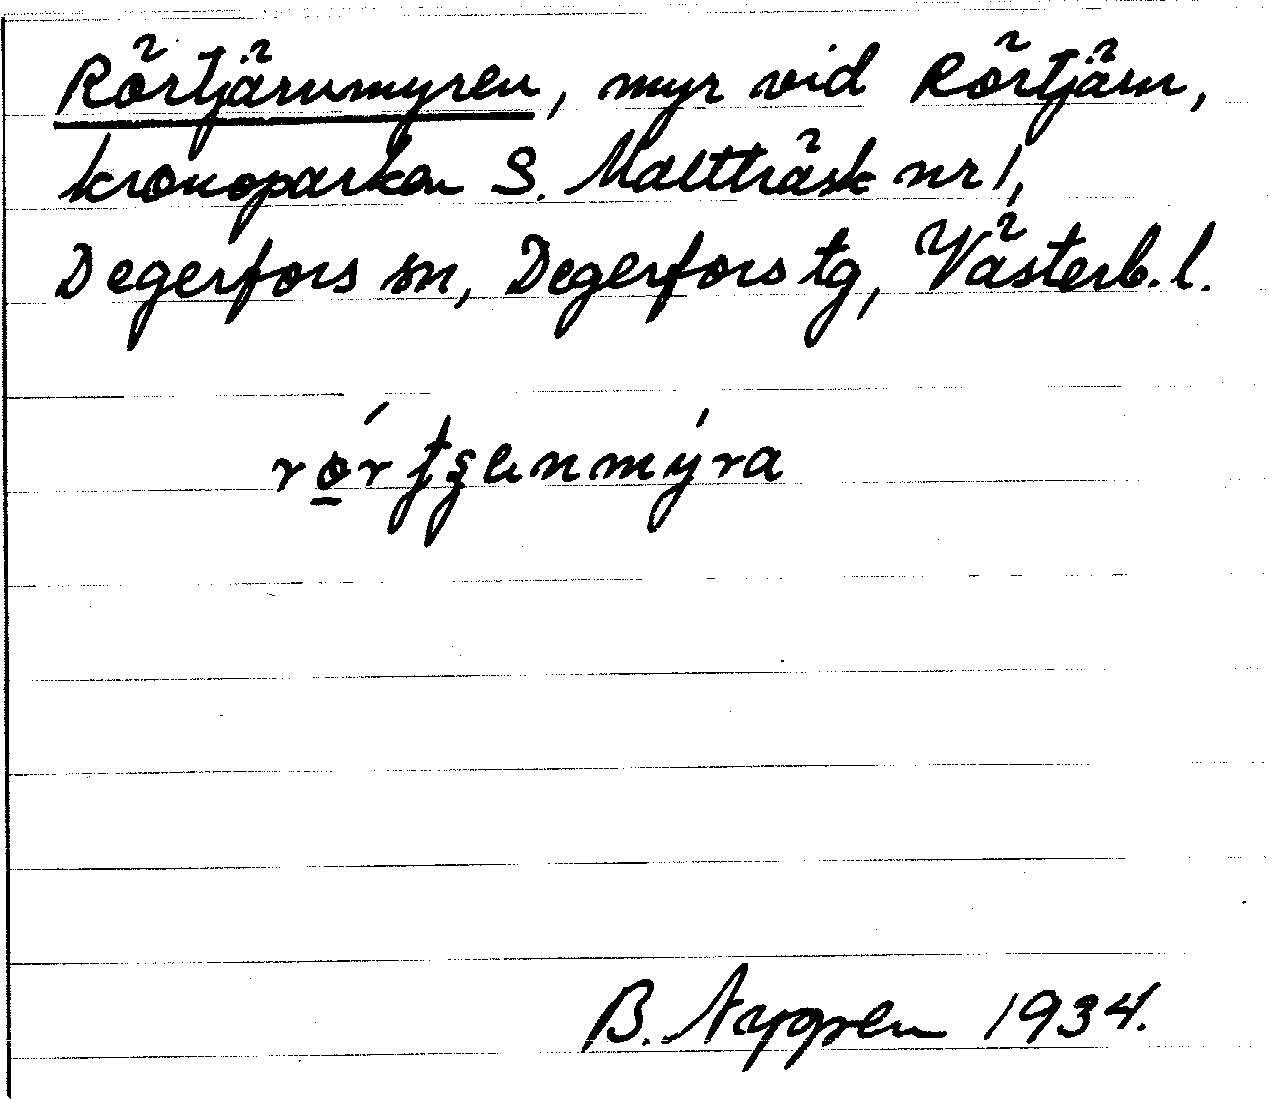 Rörtjärnmyren, myr vid Rörtjärn,
kronoparken S. Maltträsk nr 1,
Degerfors sn, Degerfors tg, Västerb. l.
B. Nygren 1934.